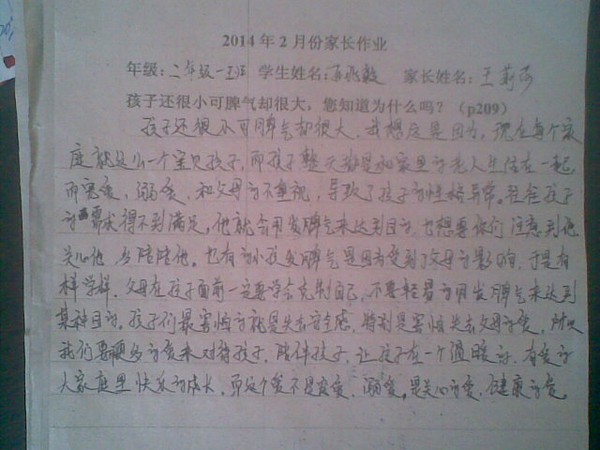 2014年2月份家长作业
年级：二年级一班 学生姓名： 家长姓名：王莉莎
孩子还很小可脾气却很大，您知道为什么吗？（p209）
孩子还很小可脾气却很大，我想应是因为，现在每个家
庭就是小一个宝贝孩子，而孩子整天都是和家里的老人生活在一起
而宠爱，溺爱，和父母的不重视，导致了孩子的性格异常。往往孩子
的需求得不到满足，他就会用发脾气来达到目的，也想要你们注意到他
关心他 多陪陪他。也有的小孩发脾气是因为受到了父母的影响，于是有
样学样，父母在孩子面前一定要学会克制自己，不要轻易的用发脾气来达到
某种目的，孩子们最害怕的就是失去安全感，特别是害怕失去父母的爱，所以
我们要硕多的爱来对待孩子，陪伴孩子，让孩子在一个温暖的，有爱的
大家庭里快乐的成长，而这个爱不是宠爱，溺爱。是关心的爱，健康的爱。